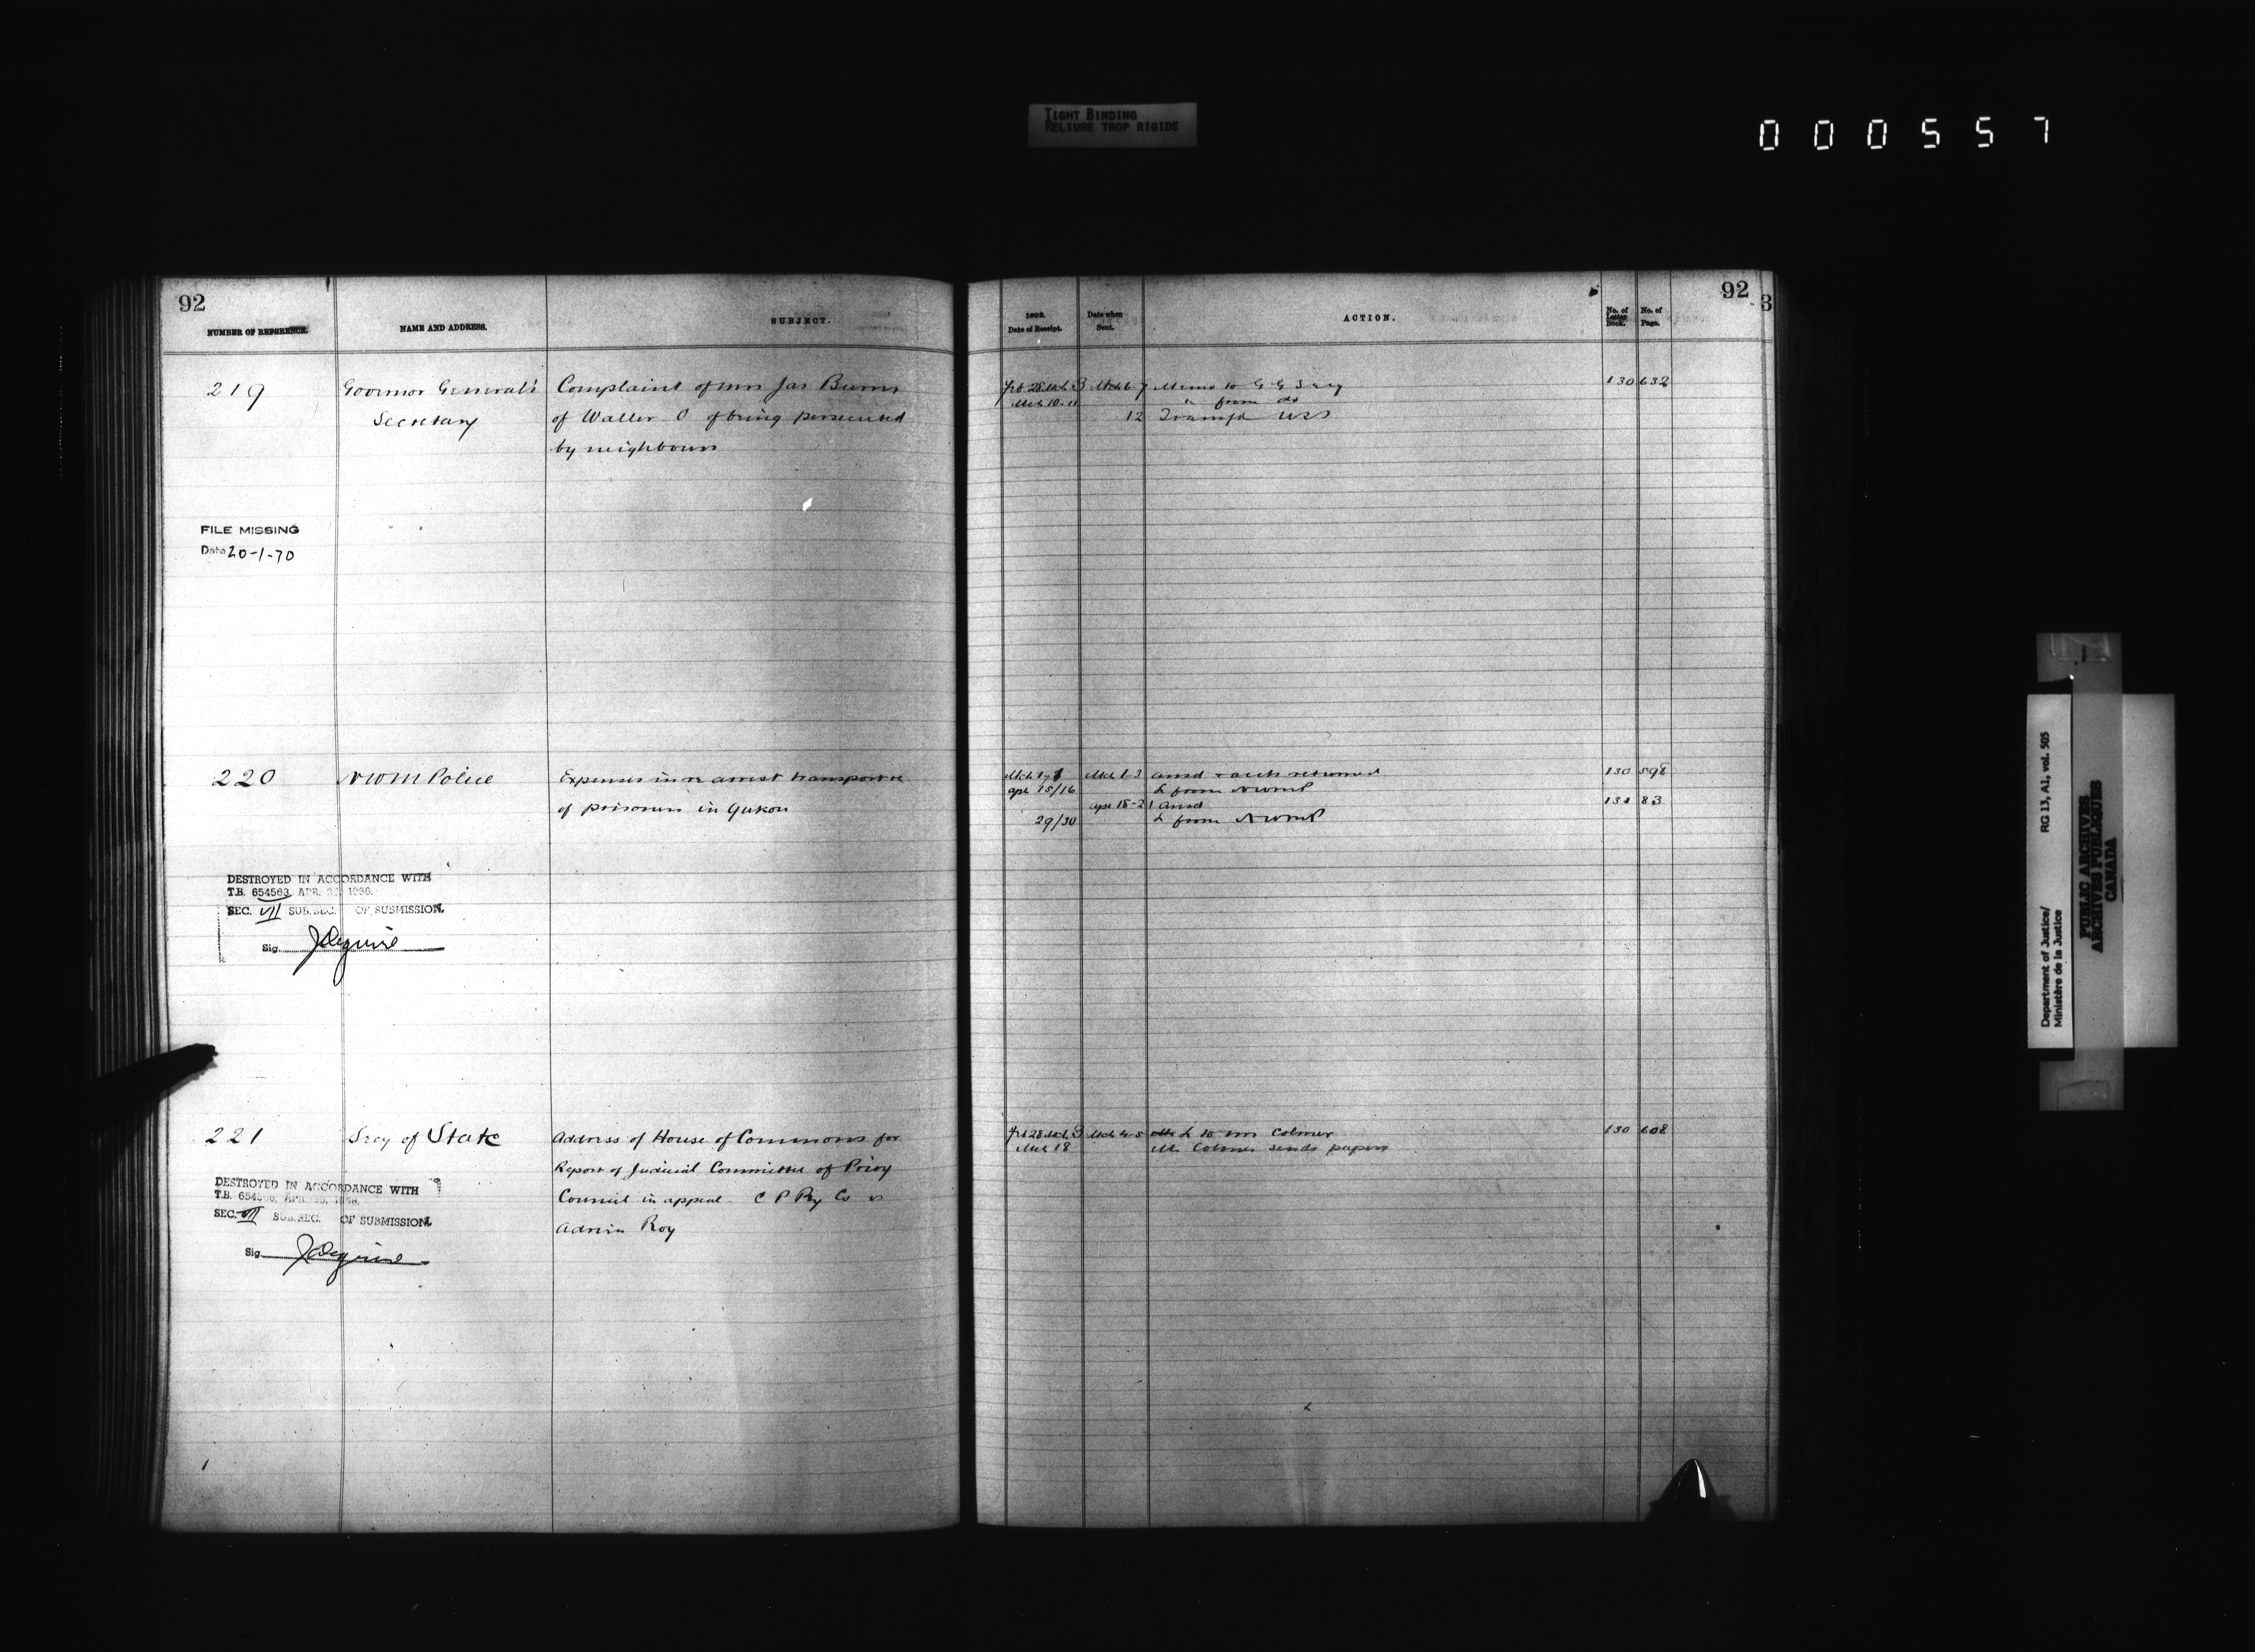 TIGHT BINDING
RELIURE TROP RIGIDE
000557
92
NUMBER OF REFERENCE.
NAME AND ADDRESS.
SUBJECT.
219
Governor General's
Secretary
Complaint of Mrs Jas Burns
of Waller O of being persecuted
by neighbours
FILE MISSING
Date 20-1-70
220
NWM Police
Expenses in re arrest transport &c
of prisoners in Yukon
DESTROYED IN ACCORDANCE WITH
T.B. 654563, APR. 1936.
SEC. VII SUB.SEC. OF SUBMISSION.
Sig.
221
Secy of State
Address of House of Commons for
Report of Judicial Committee of Privy
Council in appeal C P Ry Co vs
Adrien Roy
DESTROYED IN ACCORDANCE WITH
T.B.
SEC. VII SUB.SEC. OF SUBMISSION.
Sig.
92
3
1902.
Date of Receipt.
Date when
Sent.
ACTION.
No. of
Letter
Book.
No. of
Page.
Feb 28 Mch 3 Mch 6-7 Memo to G G Secy 130 632
Mch 10-11 " from do
12 Transfd USS
Mch 1 Mch 1-3 ansd & accts returned 130 598
Apr 15/16 L from NWMP
Apr 18-21 Ansd 131 83
29/30 L from NWMP
Feb 28 Mch 3 Mch 4-5 L to Mr Colmer 130 608
Mch 18 Mr Colmer sends papers
Department of Justice/
Ministère de la Justice
RG 13, A1, vol. 505
PUBLIC ARCHIVES
ARCHIVES PUBLIQUES
CANADA